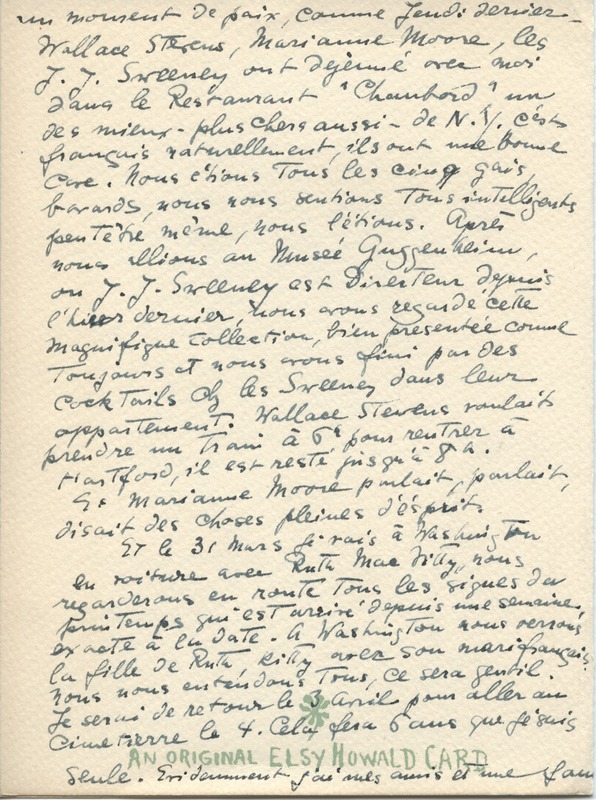 un moment de paix, comme Jeudi dernier –
Wallace Stevens, Marianne Moore, les
J. J. Sweeney ont déjeuné avec moi
dans le Restaurant "Chambord" un
des mieux – plus chers aussi – de N.Y. c'ést
français naturellement, ils ont une bonne
Cave. Nous étions Tous les cinq gais,
bavards, nous nous sentions Tous intelligents
peutêtre même, nous l'étions. Après
nous allions au Museé Guggenheim,
ou J. J. Sweeney est Directeur depuis
l'hiver dernier, nous avons regardé cette
magnifique collection, bien presentée comme
Toujours et nous avons fini par des
cocktails ch les Sweeney dans leur
appartement. Wallace Stevens voulait
prendre un Train à 6h pour rentrer à
Hartford, il est resté jusqu'à 8 h.
Et Marianne Moore parlait, parlait,
disait des choses pleines d'ésprit.
Et le 31 Mars je vais à Washington
en voiture avec Ruth, nous
regarderons en route Tous les signes du
printemps qui est arrivé depuis une semaine,
exacte à la date. A Washington nous verrons
la fille de Ruth, Kitty avec son mari français,
nous nous entendons Tous, ce sera gentil.
Je serai de retour le 3 Avril pour aller au
Cimetierre le 4. Cela fera 6 ans que je suis
AN ORIGINAL ELSY HOWALD CARD
seule. Evidemment j'ai mes amis et une